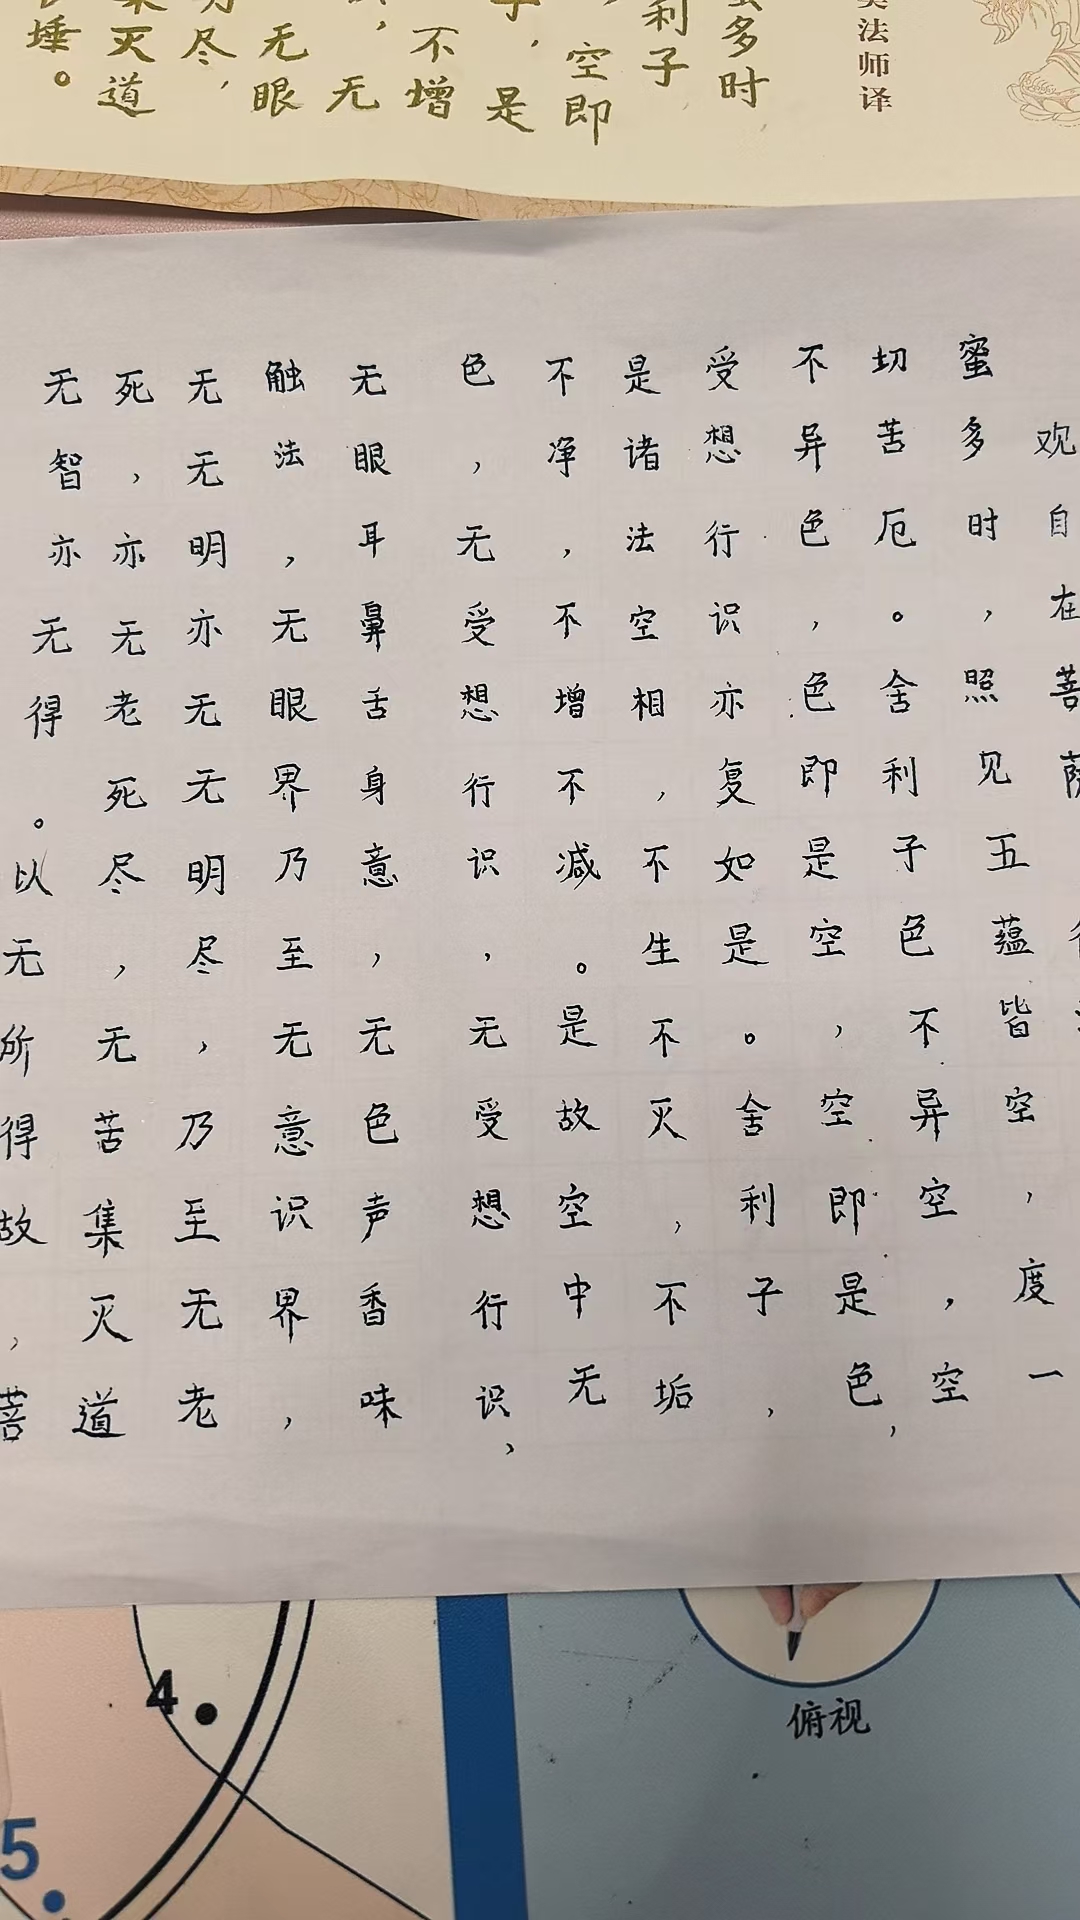 法师译
多时
利子
空即
,是
不增
,无
无眼
尽,
灭道
埵。
观自在菩萨
蜜多时,照见五蕴皆空,度一
切苦厄。舍利子色不异空,空
不异色,色即是空,空即是色,
受想行识亦复如是。舍利子,
是诸法空相,不生不灭,不垢
不净,不增不减。是故空中无
色,无受想行识,无受想行识,
无眼耳鼻舌身意,无色声香味
触法,无眼界乃至无意识界,
无无明亦无无明尽,乃至无老
死,亦无老死尽,无苦集灭道
无智亦无得。以无所得故,菩
4
5
俯视